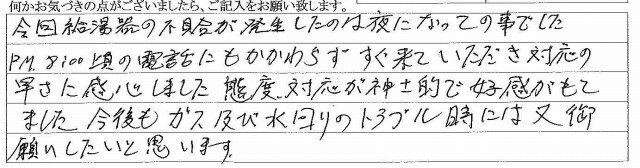 何かお気づきの点がございましたら、ご記入をお願い致します。
今回給湯器の不具合が発生したのは夜になっての事でした
P.M. 8:00頃の電話にもかかわらず すぐ来ていただき対応の
早さに感心しました 態度、対応が紳士的で好感がもて
ました 今後も ガス及び水回りのトラブル時には又御
願いしたいと思います。